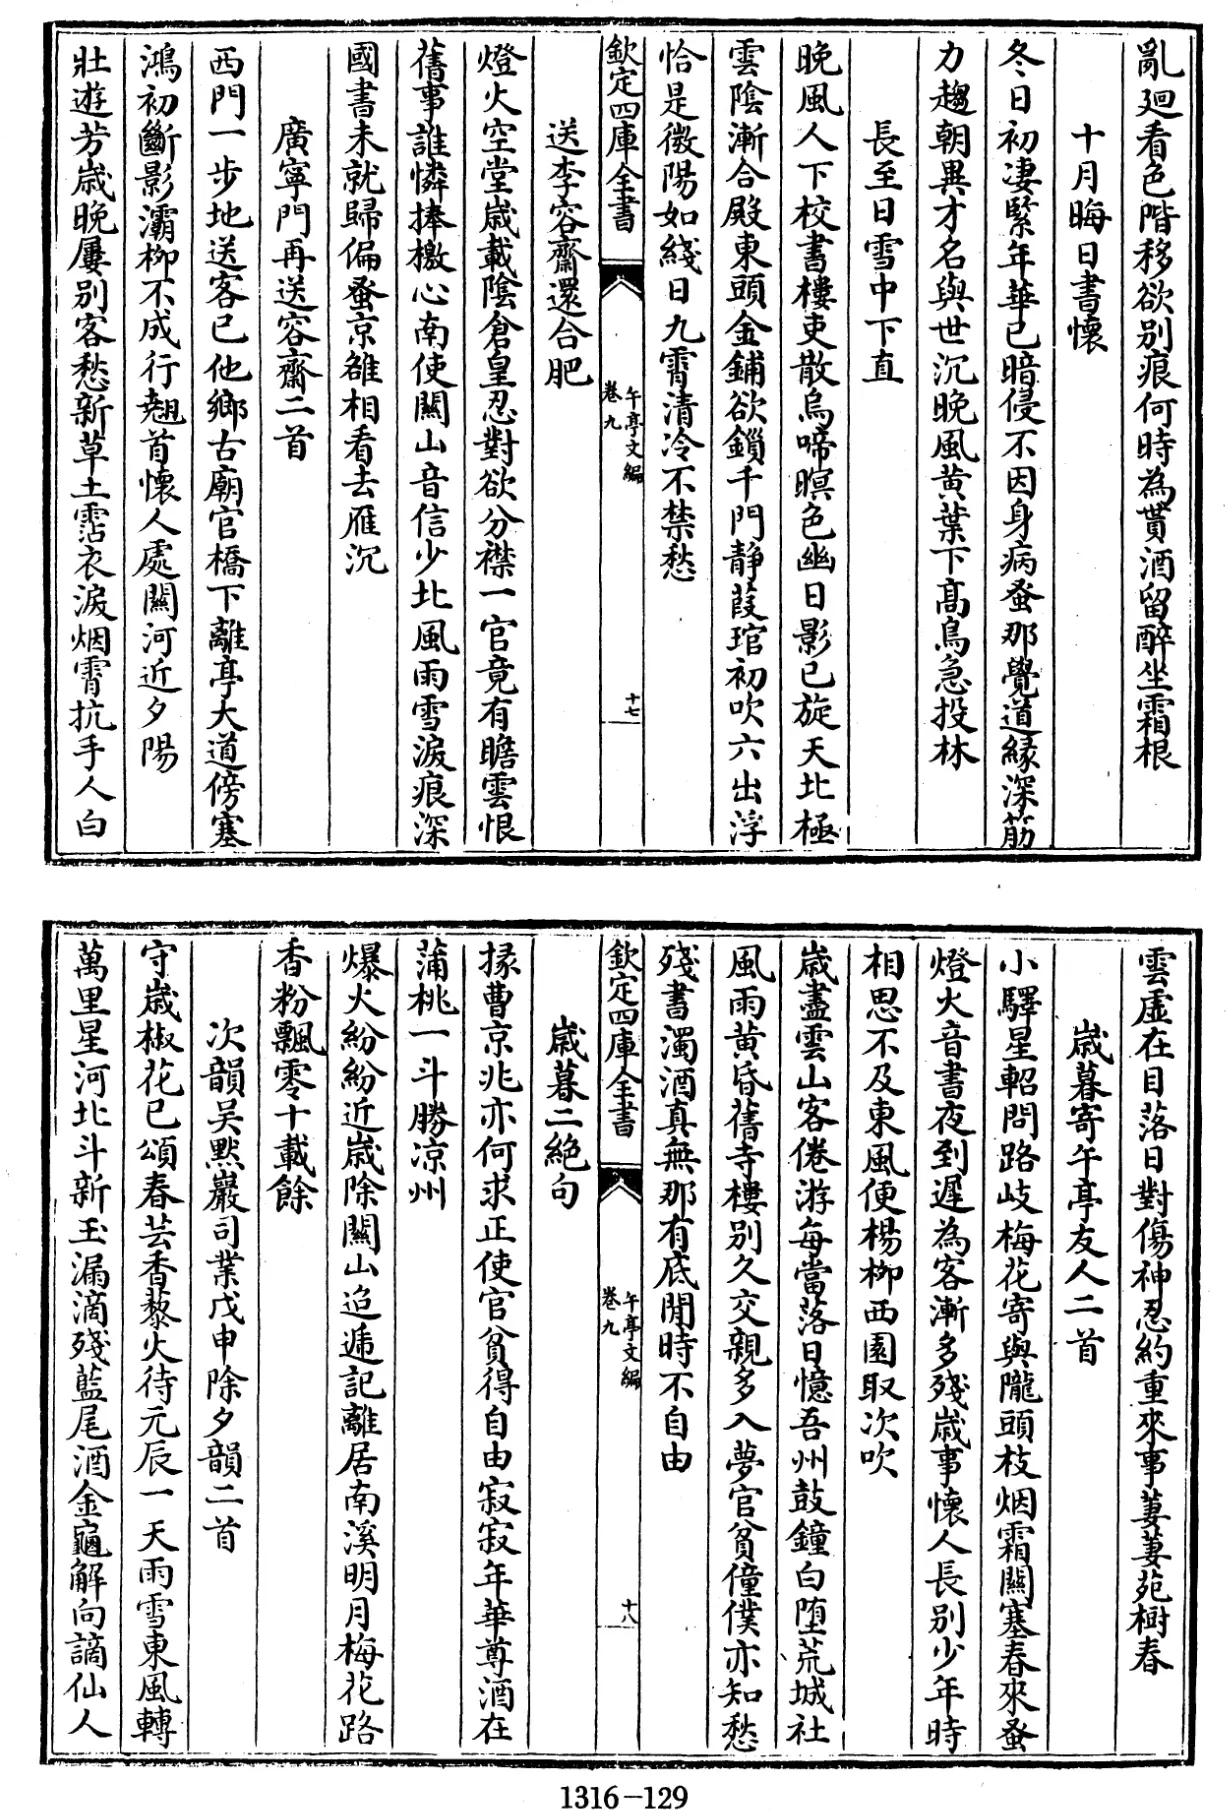 亂廻看色階移欲別痕何時為貰酒留醉坐霜根
十月晦日書懷
冬日初凄緊年華已暗侵不因身病蚤那覺道緣深筋
力趨朝異才名與世沉晚風黄葉下高鳥急投林
長至日雪中下直
晚風人下校書樓吏散烏啼暝色幽日影已旋天北極
雲陰漸合殿東頭金鋪欲鎖千門静葭琯初吹六出浮
恰是微陽如綫日九霄清冷不禁愁
欽定四庫全書
午亭文編
卷九
十七
送李容齋還合肥
燈火空堂嵗載陰倉皇忍對欲分襟一官竟有瞻雲恨
舊事誰憐捧檄心南使闗山音信少北風雨雪淚痕深
國書未就歸偏蚤京雒相看去雁沉
廣寧門再送容齋二首
西門一步地送客已他鄉古廟官橋下離亭大道傍塞
鴻初斷影灞柳不成行翹首懷人處闗河近夕陽
壯遊芳嵗晚屢別客愁新草土霑衣淚烟霄抗手人白
雲虚在目落日對傷神忍約重來事萋萋苑樹春
嵗暮寄午亭友人二首
小驛星軺問路岐梅花寄與隴頭枝烟霜闗塞春來蚤
燈火音書夜到遲為客漸多殘嵗事懷人長別少年時
相思不及東風便楊柳西園取次吹
嵗盡雲山客倦游每當落日憶吾州鼓鐘白墮荒城社
風雨黄昏舊寺樓別久交親多入夢官貧僮僕亦知愁
殘書濁酒真無那有底閒時不自由
欽定四庫全書
午亭文編
卷九
十八
嵗暮二絶句
掾曹京兆亦何求正使官貧得自由寂寂年華尊酒在
蒲桃一斗勝凉州
爆火紛紛近嵗除闗山迢遞記離居南溪明月梅花路
香粉飄零十載餘
次韻吳默巖司業戊申除夕韻二首
守嵗椒花已頌春芸香藜火待元辰一天雨雪東風轉
萬里星河北斗新玉漏滴殘藍尾酒金龜解向謫仙人
1316-129